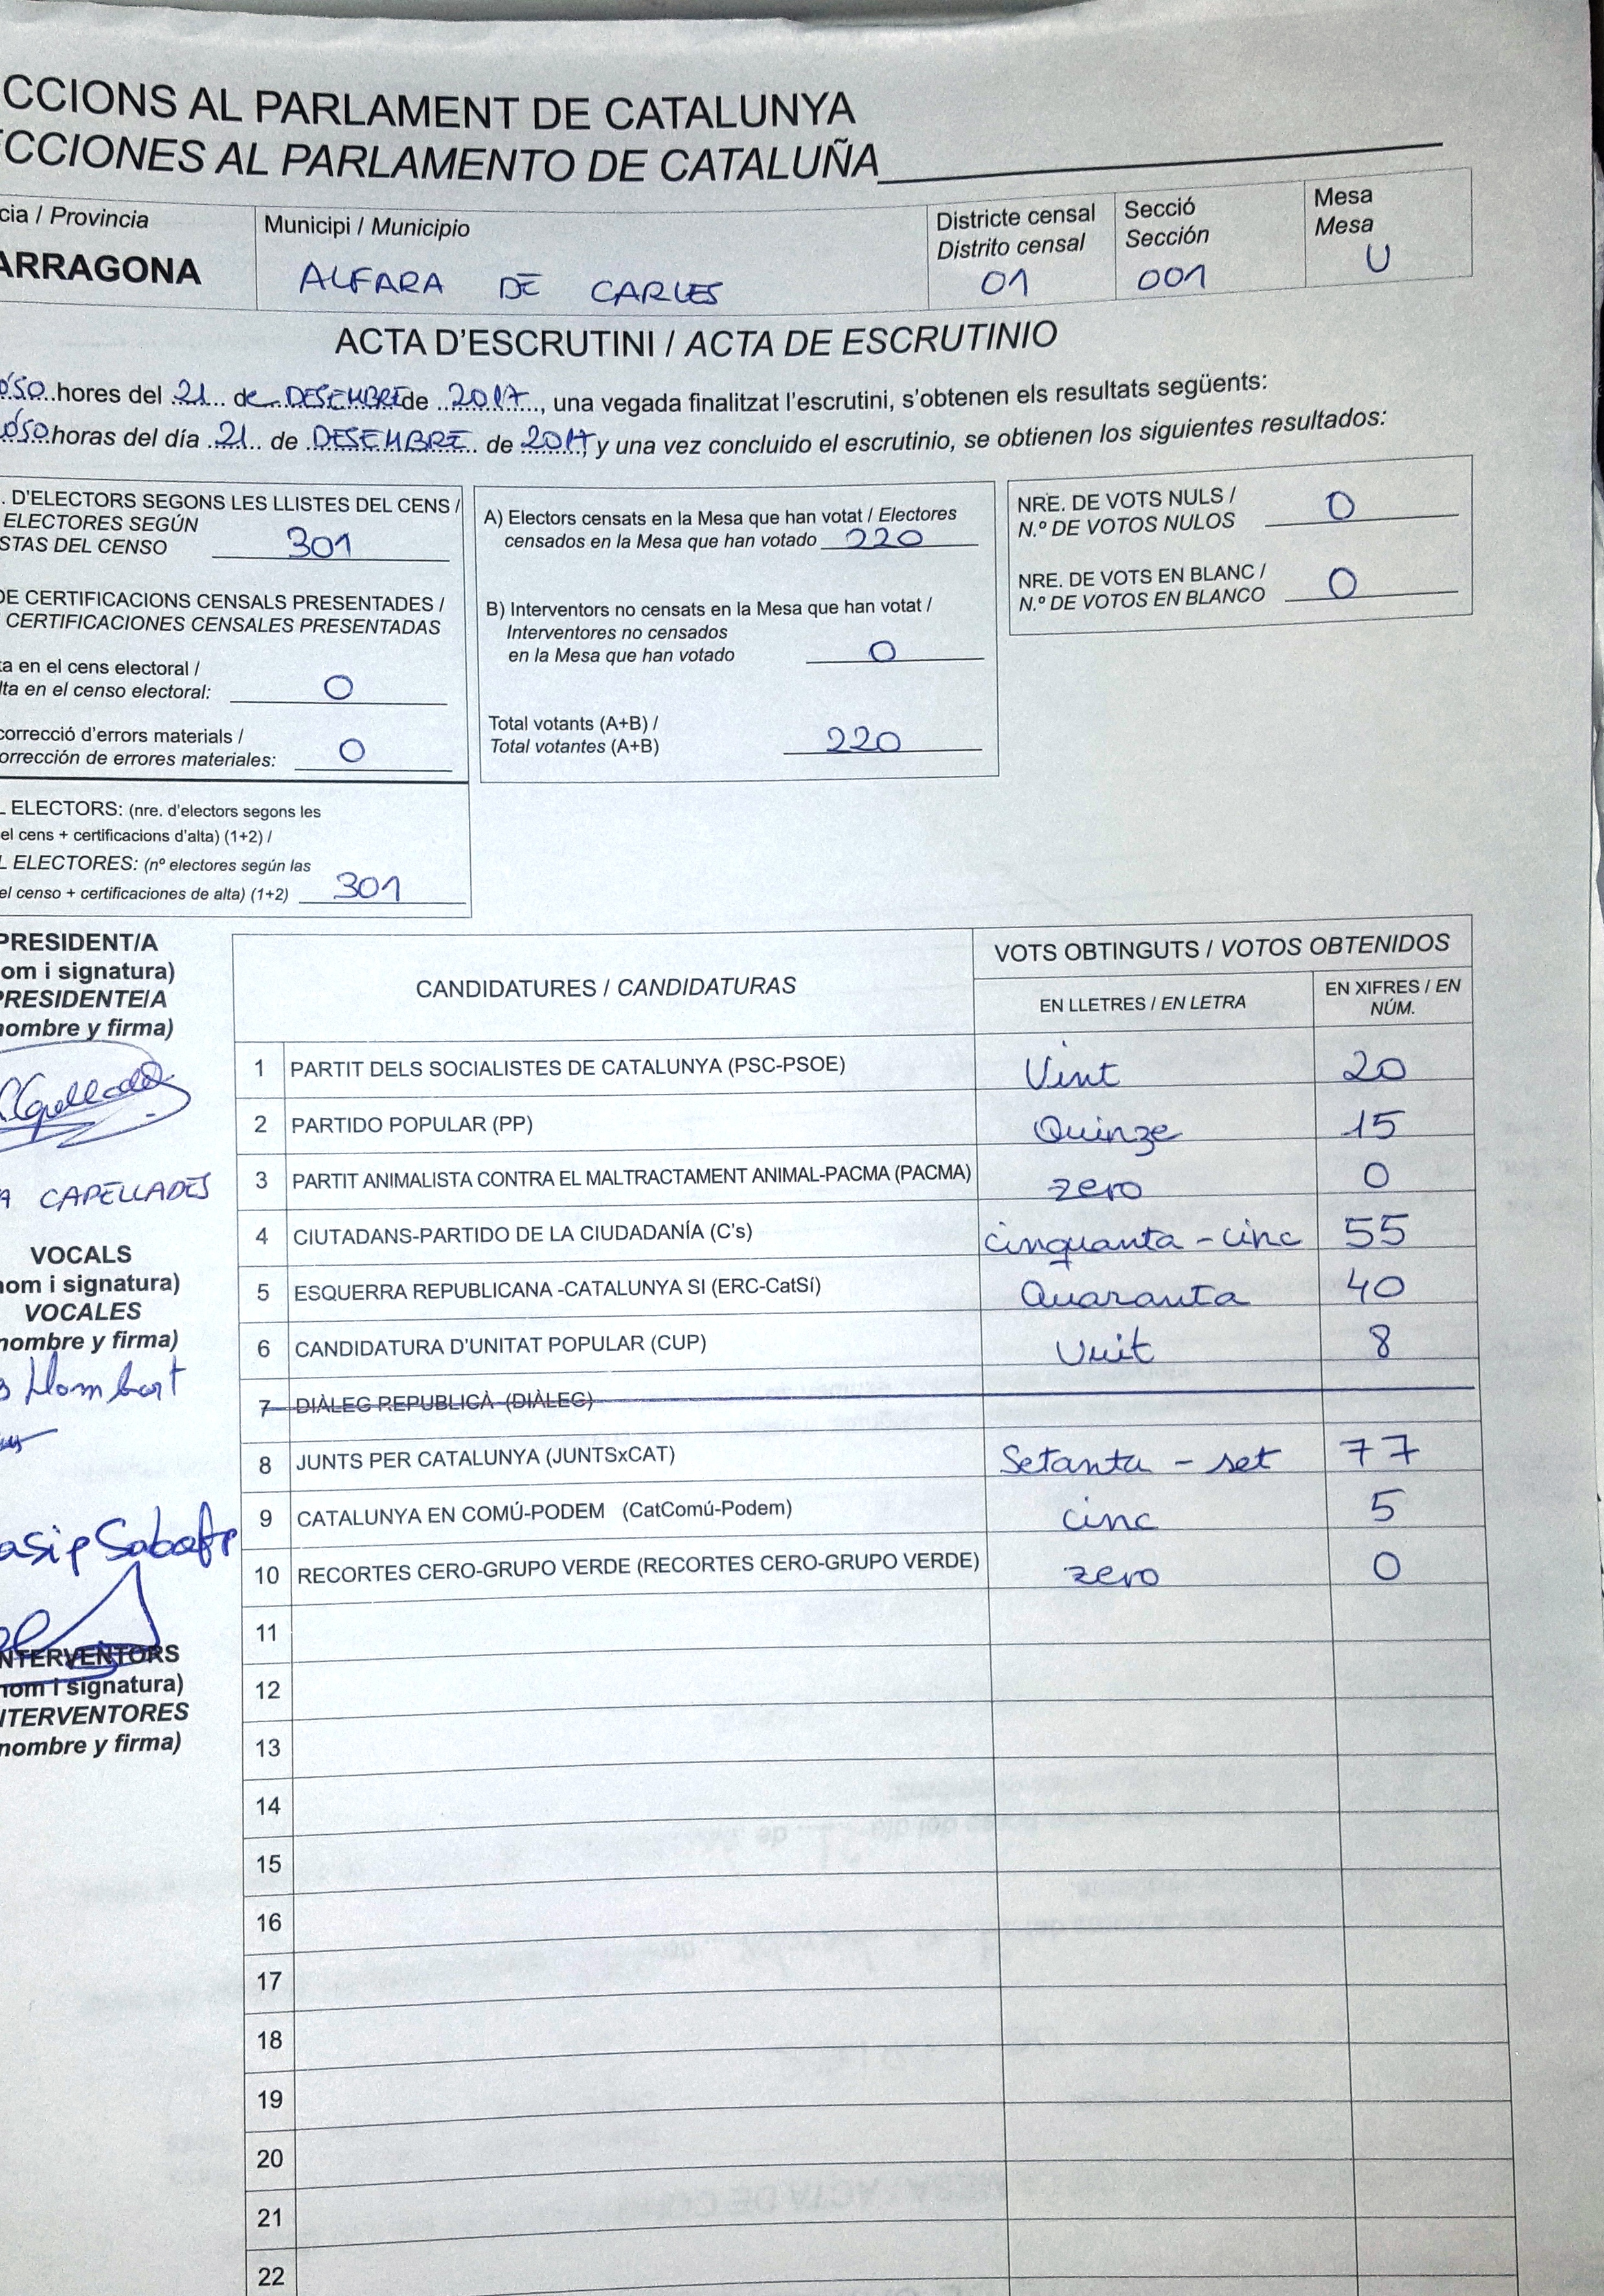 CCIONS AL PARLAMENT DE CATALUNYA
CCIONES AL PARLAMENTO DE CATALUÑA
cia / Provincia
ARRAGONA
Municipi / Municipio
ALFARA DE CARLES
Districte censal
Distrito censal
01
Secció
Sección
001
Mesa
Mesa
U
ACTA D'ESCRUTINI / ACTA DE ESCRUTINIO
hores del 21 de DESEMBRE de 2017, una vegada finalitzat l'escrutini, s'obtenen els resultats següents:
horas del día 21 de DESEMBRE de 2017 y una vez concluido el escrutinio, se obtienen los siguientes resultados:
. D'ELECTORS SEGONS LES LLISTES DEL CENS /
ELECTORES SEGÚN
STAS DEL CENSO 301
DE CERTIFICACIONS CENSALS PRESENTADES /
CERTIFICACIONES CENSALES PRESENTADAS
ta en el cens electoral /
lta en el censo electoral: 0
correcció d'errors materials /
orrección de errores materiales: 0
ELECTORS: (nre. d'electors segons les
el cens + certificacions d'alta) (1+2) /
ELECTORES: (nº electores según las
el censo + certificaciones de alta) (1+2) 301
A) Electors censats en la Mesa que han votat / Electores
censados en la Mesa que han votado 220
B) Interventors no censats en la Mesa que han votat /
Interventores no censados
en la Mesa que han votado 0
Total votants (A+B) /
Total votantes (A+B) 220
NRE. DE VOTS NULS /
N.º DE VOTOS NULOS 0
NRE. DE VOTS EN BLANC /
N.º DE VOTOS EN BLANCO 0
PRESIDENT/A
om i signatura)
PRESIDENTE/A
nombre y firma)
CAPELLADES
VOCALS
nom i signatura)
VOCALES
nombre y firma)
NTERVENTORS
nom i signatura)
ITERVENTORES
nombre y firma)
CANDIDATURES / CANDIDATURAS
VOTS OBTINGUTS / VOTOS OBTENIDOS
EN LLETRES / EN LETRA
EN XIFRES / EN NÚM.
1 PARTIT DELS SOCIALISTES DE CATALUNYA (PSC-PSOE) Vint 20
2 PARTIDO POPULAR (PP) Quinze 15
3 PARTIT ANIMALISTA CONTRA EL MALTRACTAMENT ANIMAL-PACMA (PACMA) zero 0
4 CIUTADANS-PARTIDO DE LA CIUDADANÍA (C's) Cinquanta-cinc 55
5 ESQUERRA REPUBLICANA -CATALUNYA SI (ERC-CatSí) Quaranta 40
6 CANDIDATURA D'UNITAT POPULAR (CUP) Vuit 8
7 DIÀLEG REPUBLICÀ (DIÀLEG)
8 JUNTS PER CATALUNYA (JUNTSxCAT) Setanta-set 77
9 CATALUNYA EN COMÚ-PODEM (CatComú-Podem) cinc 5
10 RECORTES CERO-GRUPO VERDE (RECORTES CERO-GRUPO VERDE) zero 0
11
12
13
14
15
16
17
18
19
20
21
22